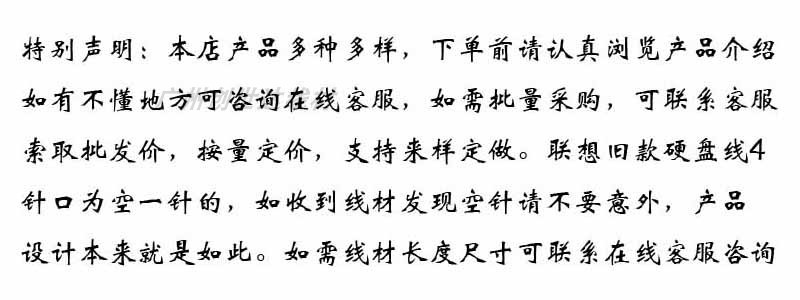 特别声明：本店产品多种多样，下单前请认真浏览产品介绍
如有不懂地方可咨询在线客服，如需批量采购，可联系客服
索取批发价，按量定价，支持来样定做。联想旧款硬盘线4
针口为空一针的，如收到线材发现空针请不要意外，产品
设计本来就是如此。如需线材长度尺寸可联系在线客服咨询